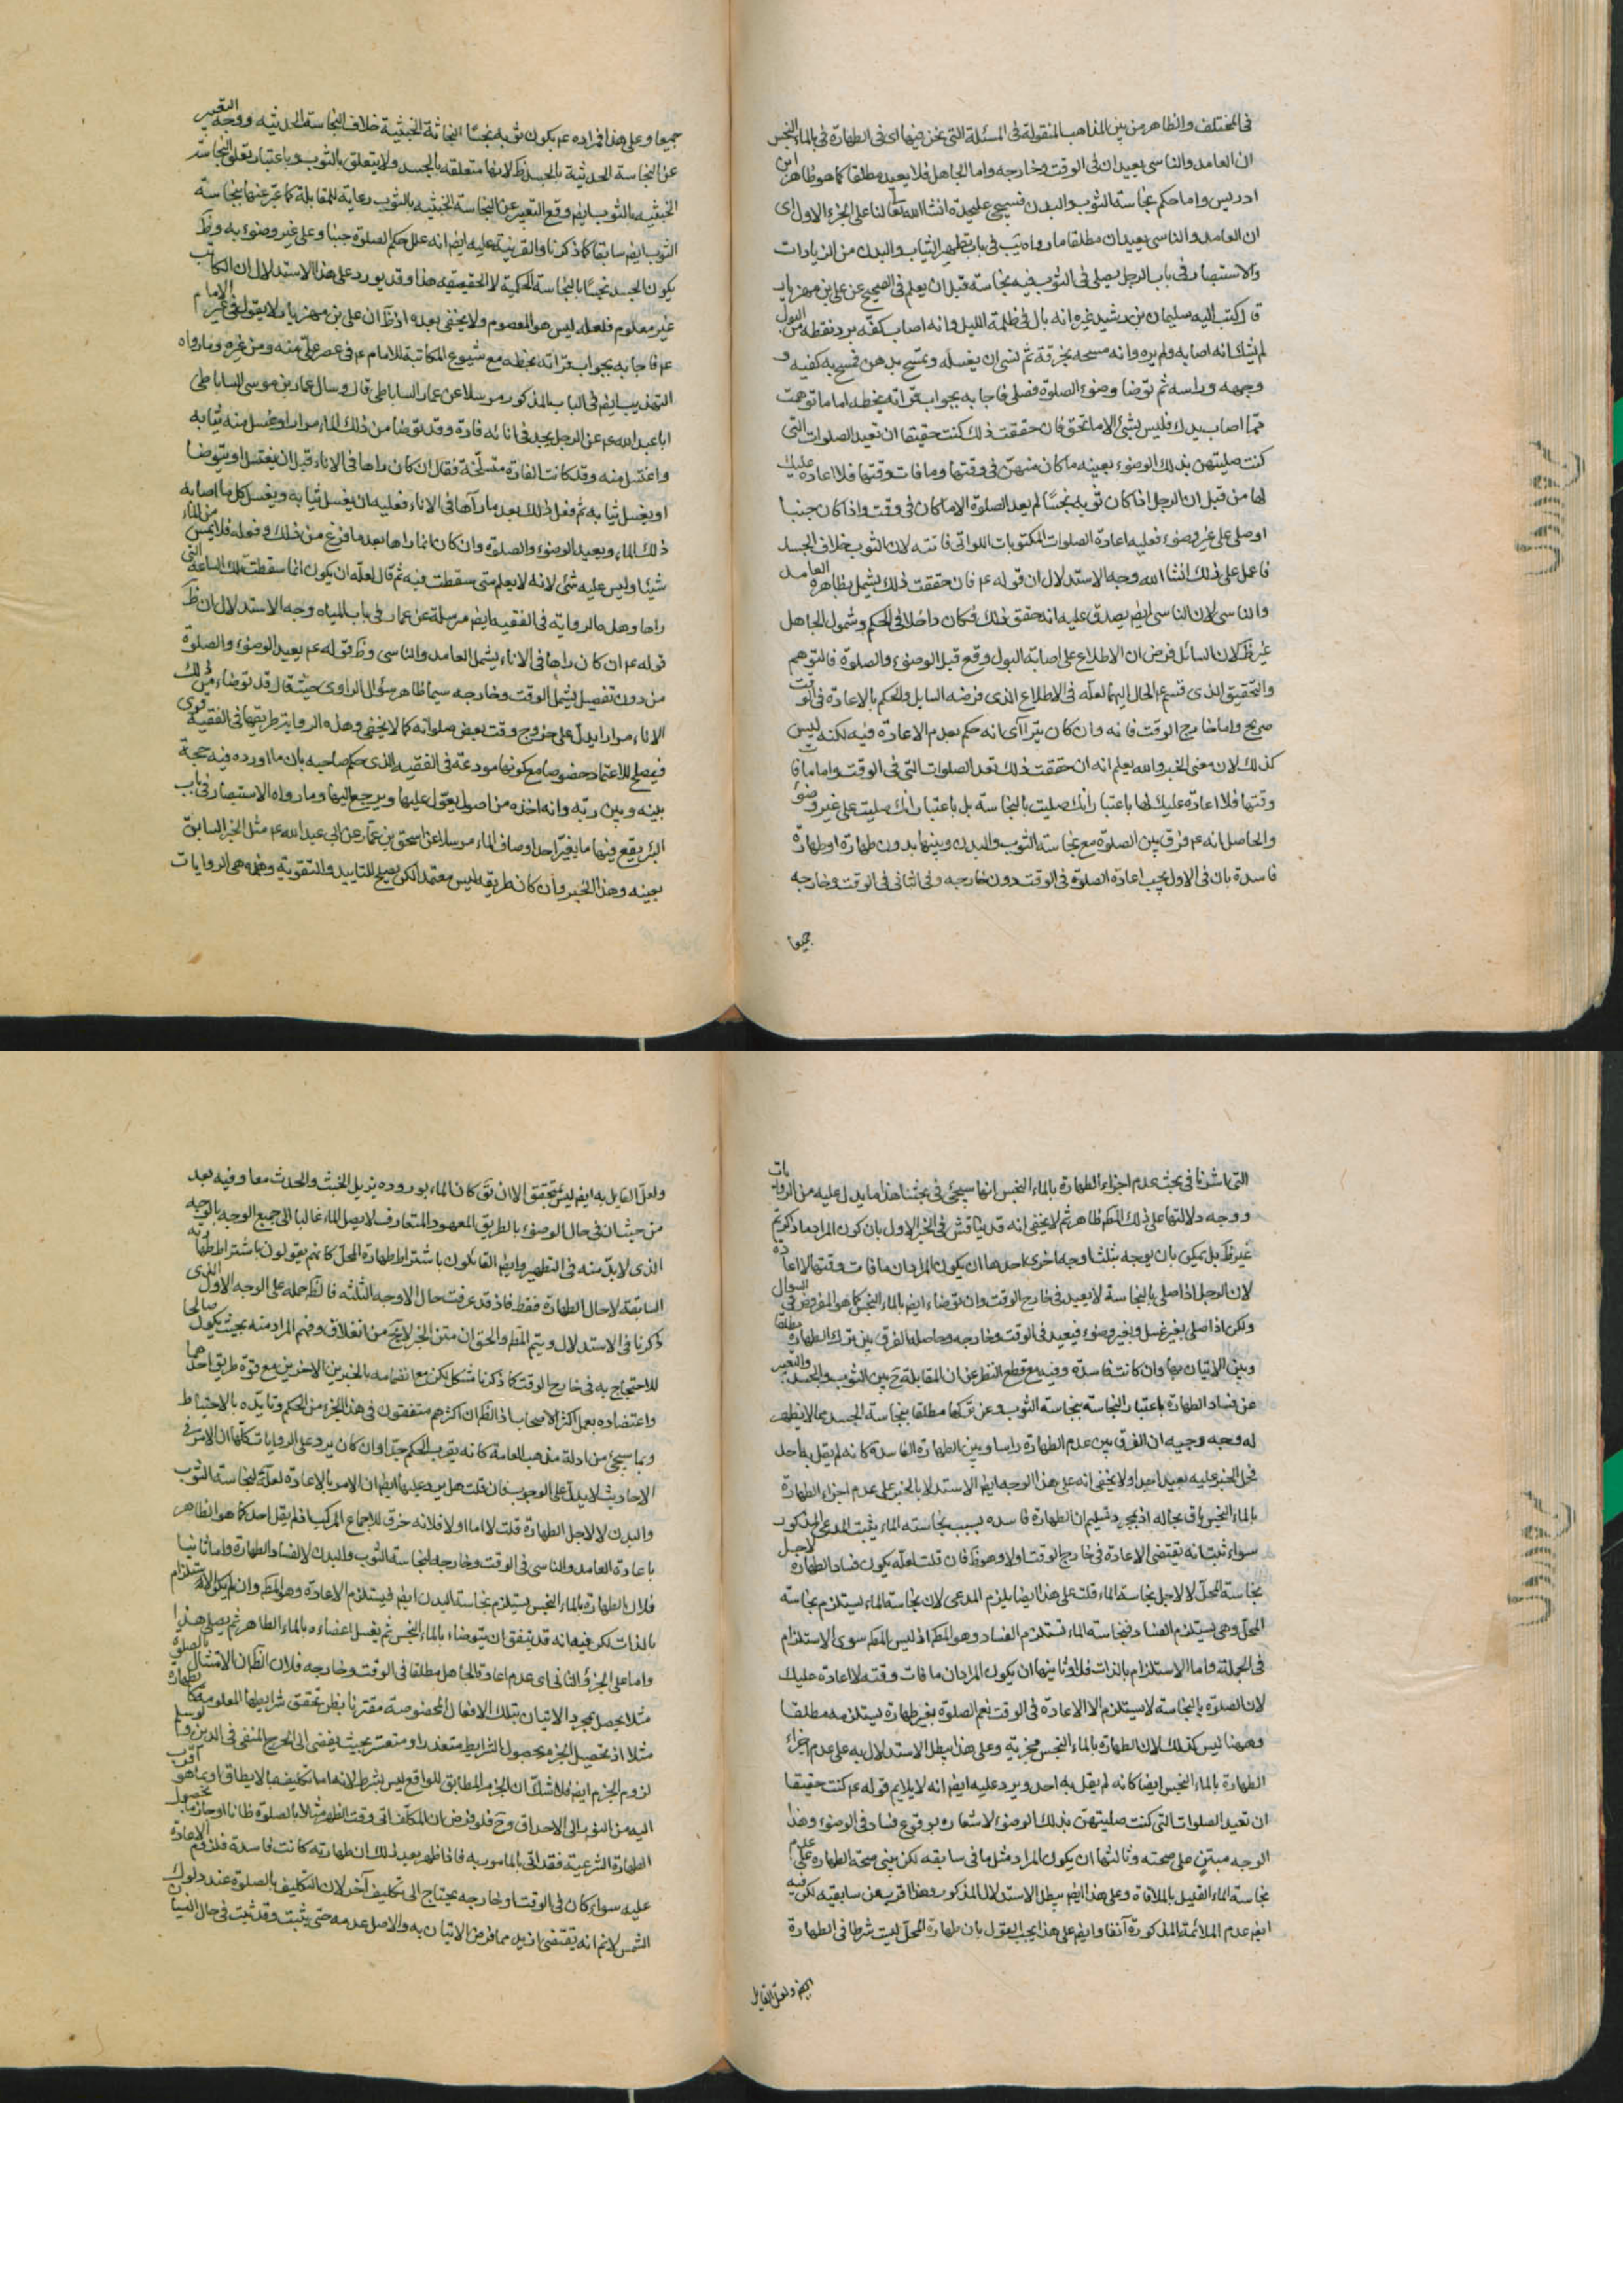 في المختلف والظاهر من بين المذاهب المنقولة في المسئلة التي نحن فيها اى في الطهارة في بالماء النجس
ان العامد والناسى يعيدان في الوقت وخارجه واما الجاهل فلا يعيد مطلقا كما هو ظاهر ابن
ادريس واما حكم نجاسة الثوب والبدن فسيجئ عليحدة انشاالله تعا لنا على الجزء الاول اى
ان العامد والناسى يعيدان مطلقا ما رواه يب في باب تطهير الثياب والبدن من الزيادات
والاستبصار في باب الرجل يصلى في الثوب فيه نجاسة قبل ان يعلم في الصحيح عن على بن مهزيار
قال كتب اليه سليمان بن رشيد يخبره انه بال في ظلمة الليل وانه اصاب كفه برد نقطه من البول
لم يشك انه اصابه ولم يره وانه مسحه بخرقة ثم نسى ان يغسله وتمسح بدهن فمسح به كفيه و
وجهه وراسه ثم توضا وضوء الصلوة فصلى فاجابه بجواب قراته بخطه اما ما توهمت
مما اصاب يدك فليس بشئ الا ما تحقق فان حققت ذلك كنت حقيقا ان تعيد الصلوات التي
كنت صليتهن بذلك الوضوء بعينه ما كان منهن في وقتها وما فات وقتها فلا اعادة عليك
لها من قبل ان الرجل اذا كان ثوبه نجسا لم يعد الصلوة الا ما كان في وقت واذا كان جنبا
اوصلى على غير وضوء فعليه اعادة الصلوات المكتوبات اللواتى فاتته لان الثوب خلاف الجسد
فاعمل على ذلك انشاالله وجه الاستدلال ان قوله ع فان حققت ذلك يشمل بظاهره العامد
والناسى لان الناسى ايضا يصدق عليه انه حقق ذلك فكان داخلا في الحكم وشمول الجاهل
غير ظ لان السائل فرض ان الاطلاع على اصابة البول وقع قبل الوضوء والصلوة فالتوهم
والتحقيق الذى قسم ع الحال اليهما لعله في الاطلاع الذى فرضه السايل والحكم بالاعادة في الوقت
صريح واما خارج الوقت فانه وان كان يترااى انه حكم بعدم الاعادة فيه لكنه ليس
كذلك لان معنى الخبر والله يعلم انه ان حققت ذلك تعد الصلوات التي في الوقت واما ما فات
وقتها فلا اعادة عليك لها باعتبار انك صليت بالنجاسة بل باعتبار انك صليت على غير وضوء
والحاصل انه ع فرق بين الصلوة مع نجاسة الثوب والبدن وبينها بدون طهارة او طهارة
فاسدة بان في الاول يجب اعادة الصلوة في الوقت دون خارجه وفى الثانى في الوقت وخارجه
جميعا
جميعا وعلى هذا فمراده ع بكون ثوبه نجسا النجاثة الخبثية خلاف النجاسة الحدثيه ووجه التعبير
عن النجاسة الحدثية بالجسد ظ لانها متعلقه بالجسد ولا يتعلق بالثوب وباعتبار تعلق النجاسة
الخبثيه بالثوب ايضا وقع التعبير عن النجاسة الخبثيه بالثوب رعاية للمقابلة كما عبر عنها بنجاسة
الثوب ايضا سابقا كما ذكرنا والقرينة عليه ايضا انه علل حكم الصلوة جنبا وعلى غير وضوء به وظ
يكون الجسد نجسا بالنجاسة الحكمية لا الحقيقيه هذا وقد يورد على هذا الاستدلال ان الكاتب
غير معلوم فلعله ليس هو المعصوم ولا يخفى بعده اذ ظ ان على بن مهزيار لا يقول في غير الامام
ع فاجابه بجواب قراته بخطه مع شيوع المكاتبة للامام ع في عصر على منه ومن غيره وما رواه
التهذيب ايضا في الباب المذكور مرسلا عن عمار الساباطى قال وسال عمار بن موسى الساباطى
ابا عبدالله ع عن الرجل يجد في انائه فارة وقد توضا من ذلك الماء مرارا وغسل منه ثيابه
واغتسل منه وقد كانت الفارة متسلخة فقال ان كان راها في الاناء قبل ان يغتسل او يتوضا
او يغسل ثيابه ثم فعل ذلك بعد ما رآها في الاناء فعليه ان يغسل ثيابه ويغسل كل ما اصابه
ذلك الماء ويعيد الوضوء والصلوة وان كان انما راها بعد ما فرغ من ذلك وفعله فلا يمس من الماء
شيئا وليس عليه شئ لانه لا يعلم متى سقطت فيه ثم قال لعله ان يكون انما سقطت تلك الساعة التي
راها وهذه الرواية في الفقيه ايضا مرسلة عن عمار في باب المياه وجه الاستدلال ان ظ
قوله ع ان كان راها في الاناء يشمل العامد والناسى وظ قوله ع يعيد الوضوء والصلوة
من دون تفصيل يشمل الوقت وخارجه سيما ظاهر سؤال الراوى حيث قال قد توضاء من ذلك
الاناء مرارا يدل على خروج وقت بعض صلواته كما لا يخفى وهذه الرواية طريقها في الفقيه قوى
فيصلح للاعتماد خصوصا مع كونها مودعة في الفقيه الذى حكم صاحبه بان ما اورده فيه حجة
بينه وبين ربه وانه اخذه من اصول يعول عليها ويرجع اليها وما رواه الاستبصار في باب
البئر يقع فيها ما يغير احد اوصاف الماء مرسلا عن اسحق بن عمار عن ابى عبدالله ع مثل الخبر السابق
بعينه وهذا الخبر وان كان طريقه ليس معتمدا لكن يصلح للتاييد والتقوية وهذه هى الروايات
التي اشرنا في بحث عدم اجزاء الطهارة بالماء النجس انها سيجئ في بحثنا هذا ما يدل عليه من الروايات
ووجه دلالتها على ذلك المط ظاهر ثم لا يخفى انه قد يناقش في الخبر الاول بان كون المراد ما ذكرتم
غير ظ بل يمكن بان يوجه بثلثة اوجه اخرى احدها ان يكون المراد ان ما فات وقتها لا اعادة
لان الرجل اذا صلى بالنجاسة لا يعيد في خارج الوقت وان توضاء ايضا بالماء النجس كما هو المفروض في السؤال
ولكن اذا صلى بغير غسل وبغير وضوء فيعيد في الوقت وخارجه وحاصله الفرق بين ترك الطهارة مطلقا
وبين الاتيان بها وان كانت فاسدة وفيه مع قطع النظر عن ان المقابلة ح بين الثوب والجسد والتعبير
عن فساد الطهارة باعتبار النجاسة بنجاسة الثوب وعن تركها مطلقا بنجاسة الجسد مما لا يظهر
له وجه وجيه ان الفرق بين عدم الطهارة راسا وبين الطهارة الفاسدة كانه لم يقل به احد
فحمل الخبر عليه بعيد جدا ولا يخفى انه على هذا الوجه ايضا الاستدلال بالخبر على عدم اجزاء الطهارة
بالماء النجس باق بحاله اذ بمجرد تسليم ان الطهارة فاسده بسبب نجاسة الماء يثبت المدعى المذكور
سواء ثبت انه يقتضى الاعادة في خارج الوقت اولا وهو ظ فان قلت لعله يكون فساد الطهارة لاجل
نجاسة المحل لا لاجل نجاسة الماء قلت على هذا ايضا يلزم المدعى لان نجاسة الماء يستلزم نجاسة
المحل وهى يستلزم الفساد فنجاسة الماء تستلزم الفساد وهو المط اذ ليس المط سوى الاستلزام
في الجملة واما الاستلزام بالذات فلا وثانيها ان يكون المراد ان ما فات وقته لا اعادة عليك
لان الصلوة بالنجاسة لا يستلزم الا الاعادة في الوقت نعم الصلوة بغير طهارة يستلزمه مطلقا
وههنا ليس كذلك لان الطهارة بالماء النجس مجزية وعلى هذا يبطل الاستدلال به على عدم اجزاء
الطهارة بالماء النجس ايضا كانه لم يقل به احد ويرد عليه ايضا انه لا يلايم قوله ع كنت حقيقا
ان تعيد الصلوات التي كنت صليتهن بذلك الوضوء لاشعاره بوقوع فساد في الوضوء وهذا
الوجه مبتن على صحته وثالثها ان يكون المراد مثل ما في سابقه لكن يبنى صحة الطهارة على عدم
نجاسة الماء القليل بالملاقاة وعلى هذا ايضا يبطل الاستدلال المذكور وهذا اقرب من سابقيه لكن فيه
ايضا عدم الملائمة المذكورة آنفا وايضا على هذا يجب القول بان طهارة المحل ليست شرطا في الطهارة
ايضا ولعل القايل
ولعل القايل به ايضا ليس بمتحقق الا ان يق كان الماء بوروده يزيل الخبث والحدث معا وفيه بعد
من حيث ان في حال الوضوء بالطريق المعهود المتعارف لا يصل الماء غالبا الى جميع الوجه بالوجه
الذى لا بد منه في التطهير وايضا القايلون باشتراط طهارة المحل كانهم يقولون باشتراط طهارته
السابقة لا حال الطهارة فقط فاذ قد عرفت حال الاوجه الثلثه فالظ حمله على الوجه الاول الذى
ذكرنا في الاستدلال ويتم المط والحق ان متن الخبر لا يخ من انغلاق وفهم المراد منه بحيث يكون صالحا
للاحتجاج به في خارج الوقت كما ذكرنا مشكل لكن مع انضمامه بالخبرين الاخرين مع قوة طريق احدهما
واعتضاده بعمل اكثر الاصحاب اذ الظ ان اكثرهم متفقون في هذا الجزء من الحكم وتايده بالاحتياط
وبما سيجئ من ادلة مذهب العامة كانه يقرب الحكم جدا وان كان يرد على الروايات كلها ان الامر في
الاحاديث لا يدل على الوجوب فان قلت هل يرد عليها ايضا ان الامر بالاعادة لعله لنجاسة الثوب
والبدن لا لاجل الطهارة قلت لا اما اولا فلانه خرق للاجماع المركب اذ لم يقل احد كما هو الظاهر
باعادة العامد والناسى في الوقت وخارجه لنجاسة الثوب والبدن لا لفساد الطهارة واما ثانيا
فلان الطهارة بالماء النجس يستلزم نجاسة البدن ايضا فيستلزم الاعادة وهو المط وان لم يكن الاستلزام
بالذات لكن فيه انه قد يتفق ان يتوضاء بالماء النجس ثم يغسل اعضاءه بالماء الطاهر ثم يصلى هذا
واما على الجزء الثانى اى عدم اعادة الجاهل مطلقا في الوقت وخارجه فلان الظ ان الامتثال بالصلوة
مثلا يحصل بمجرد الاتيان بتلك الافعال المخصوصة مقترنا بظن تحقق شرايطها المعلومة كالطهارة
مثلا اذ تحصيل الجزم بحصول الشرايط متعذر او متعسر بحيث يفضى الى الحرج المنفى في الدين ولو سلم
لزوم الجزم ايضا فلا شك ان الجزم المطابق للواقع ليس بشرط لانه اما تكليف بما لا يطاق او بما هو اقرب
اليه من النور الى الاحداق وح فلو فرض ان المكلف اتى وقت الظهر مثلا بالصلوة ظانا او جازما بحصول
الطهارة الشرعية فقد اتى بالمامور به فاذا ظهر بعد ذلك ان طهارته كانت فاسدة فلزوم الاعادة
عليه سواء كان في الوقت او خارجه يحتاج الى تكليف آخر لان التكليف بالصلوة عند دلوك
الشمس لا نم انه يقتضى ازيد مما فرض الاتيان به والاصل عدمه حتى يثبت وقد ثبت في حال النسيان